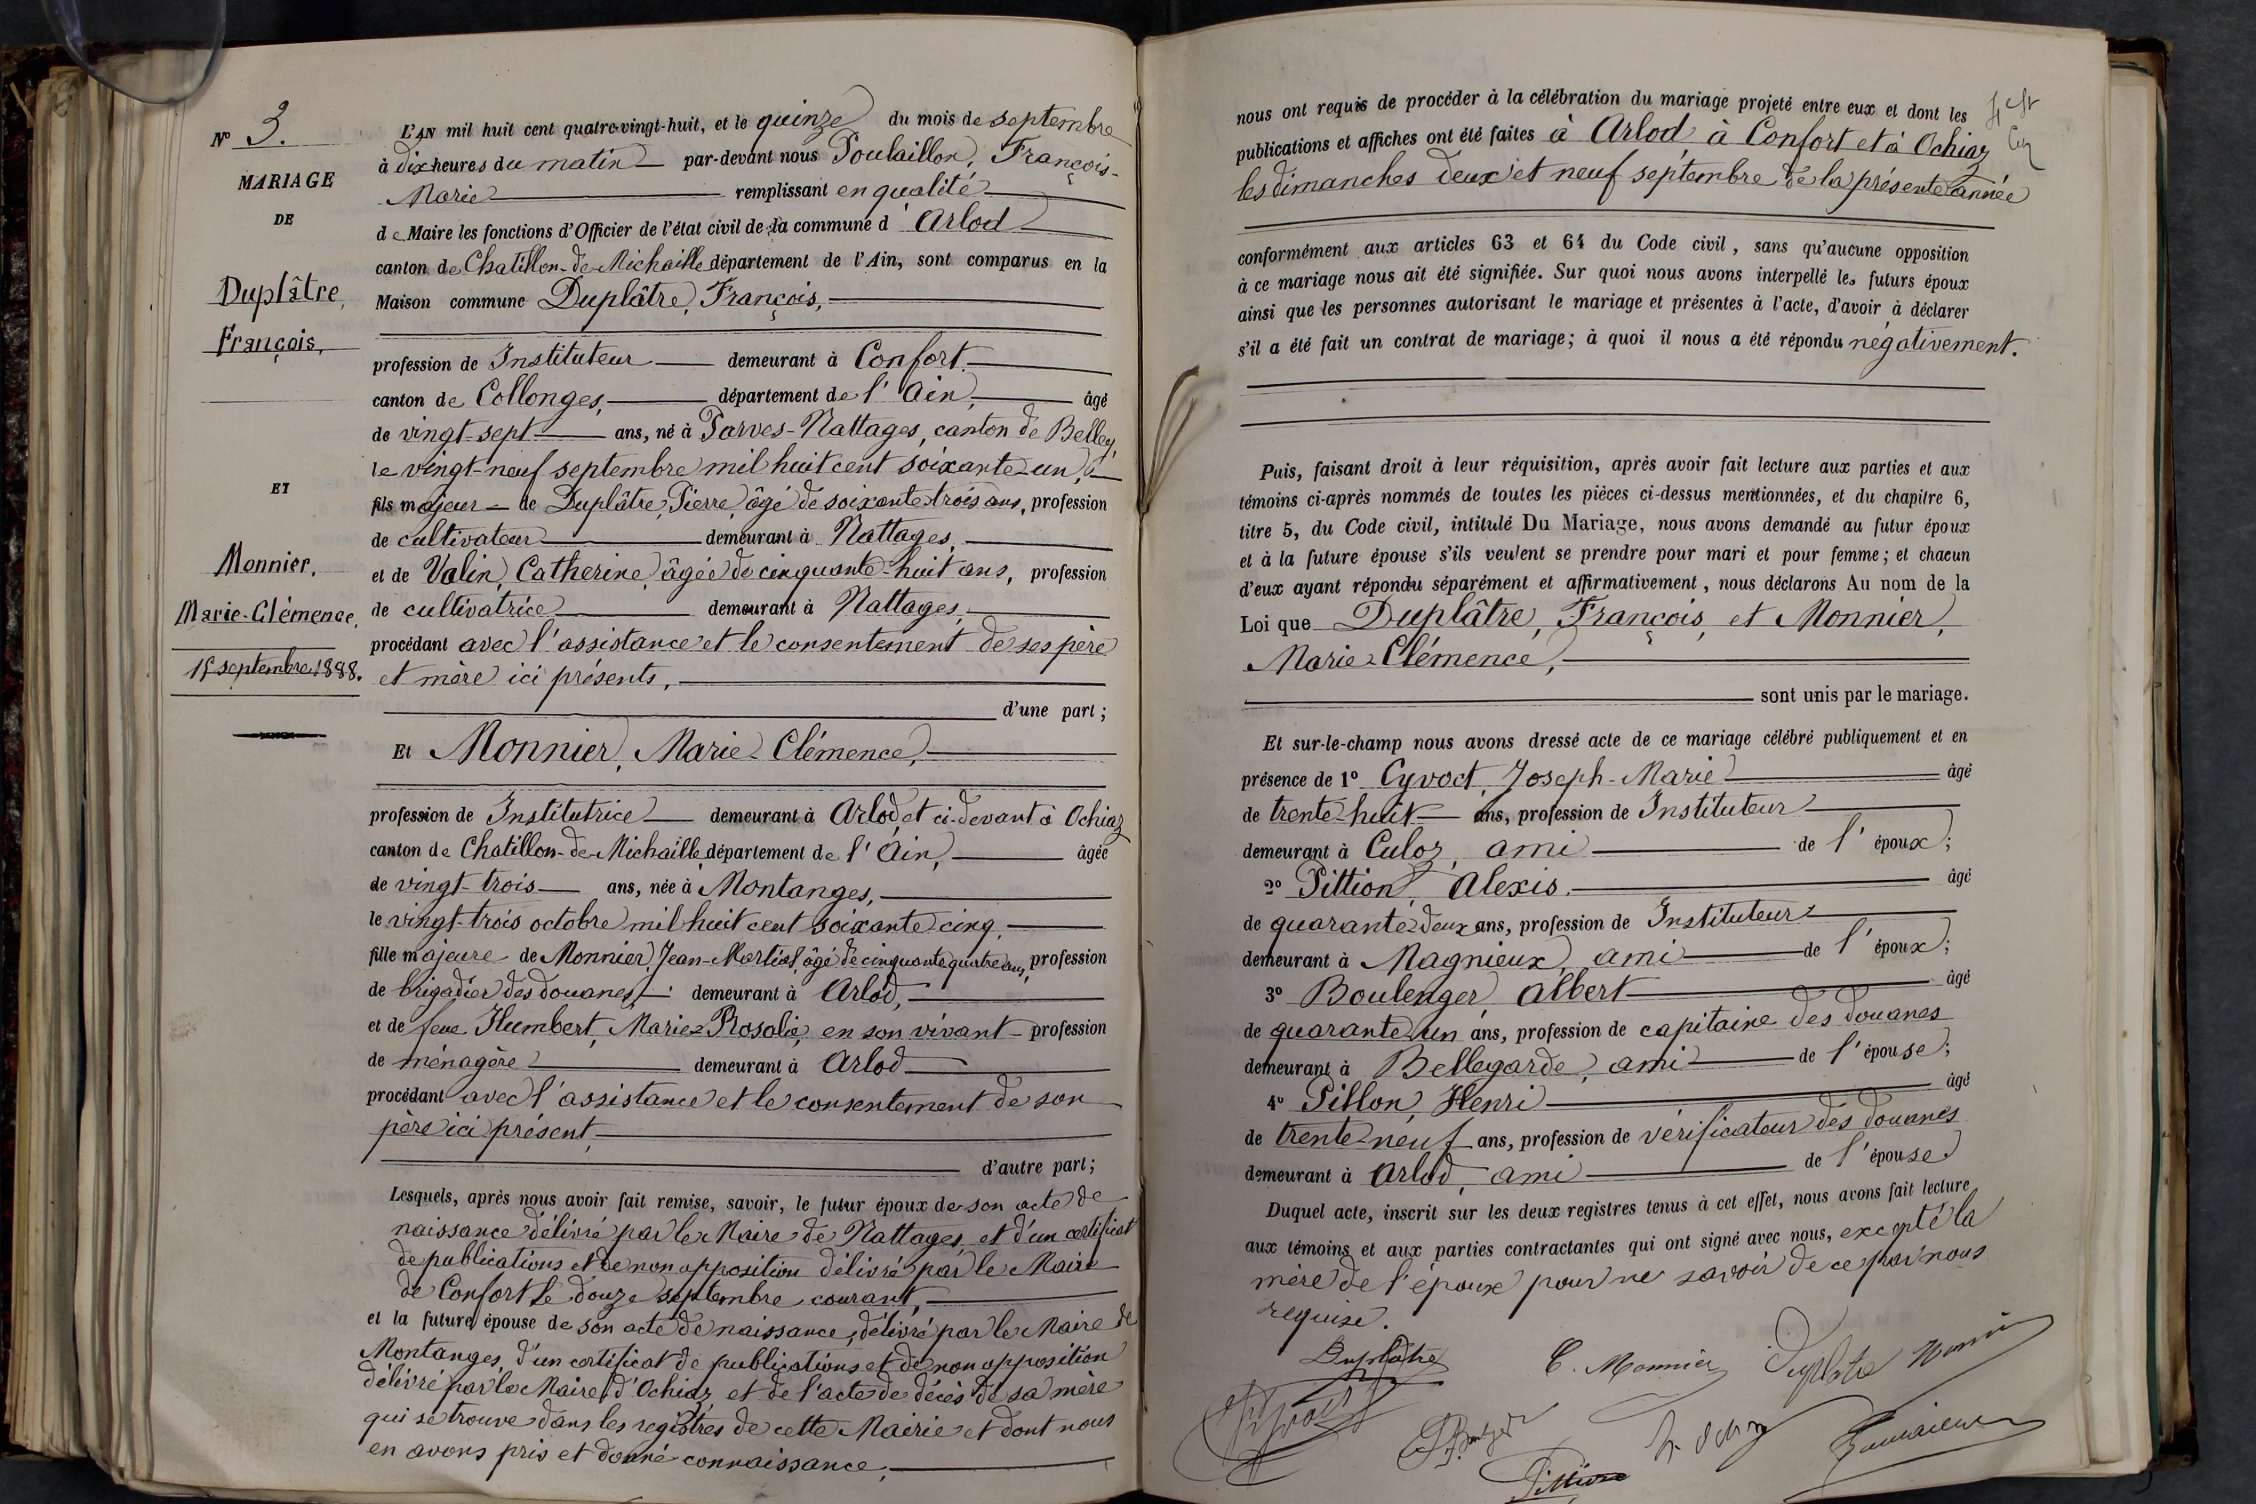 Nº 3.
MARIAGE
DE
Duplâtre,
François,
ET
Monnier,
Marie-Clémence,
15 septembre 1888.
L'AN mil huit cent quatre-vingt-huit, et le quinze du mois de septembre
à dix heures du matin par-devant nous Poulaillon, François-
Marie remplissant en qualité
de Maire les fonctions d'Officier de l'état civil de la commune d'Arlod
canton de Chatillon-de-Michaille département de l'Ain, sont comparus en la
Maison commune Duplâtre, François,
profession de Instituteur demeurant à Confort
canton de Collonges, département de l'Ain, âgé
de vingt-sept ans, né à Parves-Nattages, canton de Belley,
le vingt-neuf septembre mil huit cent soixante-un,
fils majeur de Duplâtre, Pierre, âgé de soixante trois ans, profession
de cultivateur demeurant à Nattages,
et de Valin, Catherine, âgée de cinquante-huit ans, profession
de cultivatrice demeurant à Nattages,
procédant avec l'assistance et le consentement de ses père
et mère ici présents,
d'une part;
Et Monnier, Marie-Clémence,
profession de Institutrice demeurant à Arlod, et ci-devant à Ochiaz
canton de Chatillon-de-Michaille, département de l'Ain, âgée
de vingt-trois ans, née à Montanges,
le vingt-trois octobre mil huit cent soixante cinq,
fille majeure de Monnier, Jean-Martial, âgé de cinquante quatre ans, profession
de brigadier des douanes, demeurant à Arlod,
et de feue Humbert, Marie-Rosalie, en son vivant profession
de ménagère demeurant à Arlod
procédant avec l'assistance et le consentement de son
père ici présent,
d'autre part;
Lesquels, après nous avoir fait remise, savoir, le futur époux de son acte de
naissance délivré par le Maire de Nattages, et d'un certificat
de publications et de non opposition délivré par le Maire
de Confort le douze septembre courant,
et la future épouse de son acte de naissance, délivré par le Maire de
Montanges, d'un certificat de publications et de non opposition
délivré par le Maire d'Ochiaz, et de l'acte de décès de sa mère
qui se trouve dans les registres de cette Mairie et dont nous
en avons pris et donné connaissance,
nous ont requis de procéder à la célébration du mariage projeté entre eux et dont les
publications et affiches ont été faites à Arlod, à Confort et à Ochiaz
les dimanches deux et neuf septembre de la présente année
conformément aux articles 63 et 64 du Code civil, sans qu'aucune opposition
à ce mariage nous ait été signifiée. Sur quoi nous avons interpellé les futurs époux
ainsi que les personnes autorisant le mariage et présentes à l'acte, d'avoir à déclarer
s'il a été fait un contrat de mariage; à quoi il nous a été répondu négativement.
Puis, faisant droit à leur réquisition, après avoir fait lecture aux parties et aux
témoins ci-après nommés de toutes les pièces ci-dessus mentionnées, et du chapitre 6,
titre 5, du Code civil, intitulé Du Mariage, nous avons demandé au futur époux
et à la future épouse s'ils veulent se prendre pour mari et pour femme; et chacun
d'eux ayant répondu séparément et affirmativement, nous déclarons Au nom de la
Loi que Duplâtre, François, et Monnier,
Marie-Clémence,
sont unis par le mariage.
Et sur-le-champ nous avons dressé acte de ce mariage célébré publiquement et en
présence de 1º Cyvoct, Joseph-Marie âgé
de trente-huit ans, profession de Instituteur
demeurant à Culoz, ami de l'époux;
2º Pittion, Alexis, âgé
de quarante-deux ans, profession de Instituteur
demeurant à Magnieux, ami de l'époux;
3º Boulenger, Albert âgé
de quarante-un ans, profession de capitaine des douanes
demeurant à Bellegarde, ami de l'épouse;
4º Pillon, Henri âgé
de trente-neuf ans, profession de vérificateur des douanes
demeurant à Arlod, ami de l'épouse
Duquel acte, inscrit sur les deux registres tenus à cet effet, nous avons fait lecture
aux témoins et aux parties contractantes qui ont signé avec nous, excepté la
mère de l'époux pour ne savoir de ce par nous
requise.
Duplâtre C. Monnier Duplatre Monnier
Pittion